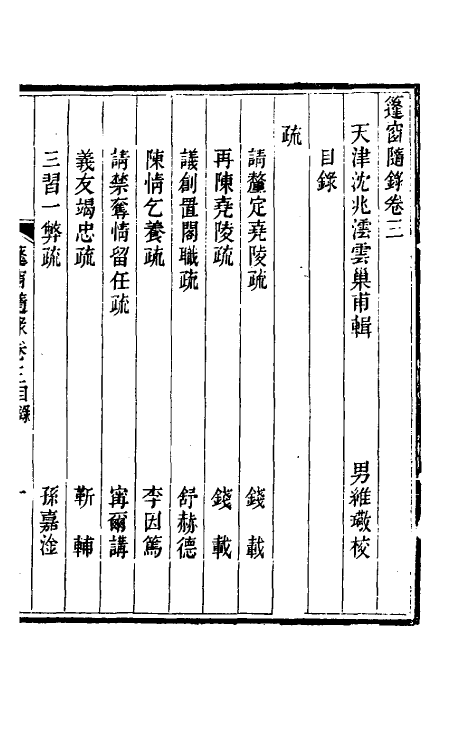 篷窗隨錄卷三
天津沈兆澐雲巢甫輯　男維璥校
目錄
疏
請釐定堯陵疏　錢載
再陳堯陵疏　錢載
議創置閣職疏　舒赫德
陳情乞養疏　李因篤
請禁奪情留任疏　甯爾講
義友竭忠疏　靳輔
三習一弊疏　孫嘉淦
篷窗隨錄卷三目錄　一